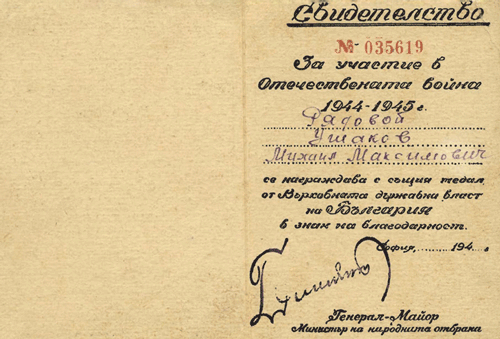 Свидетелство
№ 035619
За участие в
Отечествената война
1944-1945 г.
Рядовой
Ушаков
Михаил Максимович
се награждава с същия медал
от Върховната държавна власт
на България
в знак на благодарност.
София, 194 г.
Генерал-Майор
Министър на народната отбрана